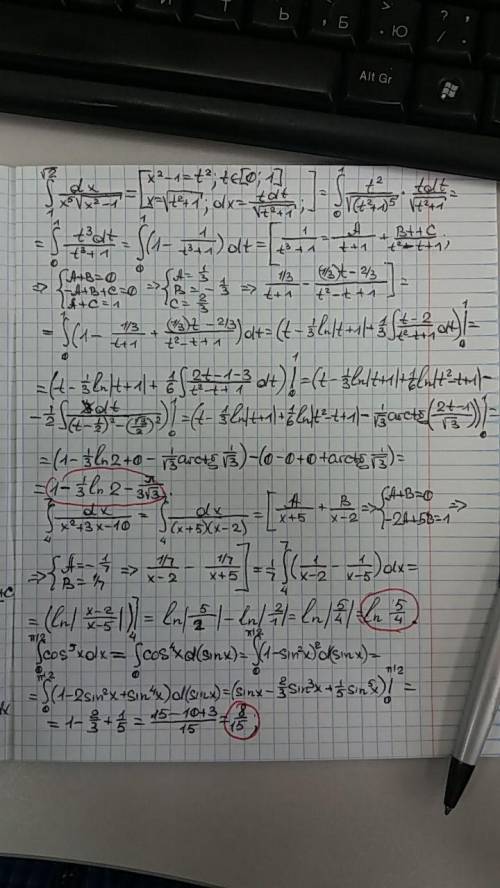 Ь Б Ю
Alt Gr
∫₁^√2 dx/(x⁵√(x²-1)) = [x²-1=t²; t∈[0;1] x=√(t²+1); dx = tdt/√(t²+1);] = ∫₀¹ t²/√((t²+1)⁵) · tdt/√(t²+1) =
= ∫₀¹ t³dt/(t³+1) = ∫₀¹ (1 - 1/(t³+1))dt = [1/(t³+1) = A/(t+1) + (Bt+C)/(t²-t+1);
⇒ {A+B=0 -A+B+C=0 A+C=1 ⇒ {A=1/3 B=-1/3 C=2/3 ⇒ (1/3)/(t+1) - ((1/3)t-2/3)/(t²-t+1)] =
= ∫₀¹ (1 - (1/3)/(t+1) + ((1/3)t-2/3)/(t²-t+1))dt = (t - 1/3 ln|t+1| + 1/3 ∫ (t-2)/(t²-t+1) dt)|₀¹ =
= (t - 1/3 ln|t+1| + 1/6 ∫ (2t-1-3)/(t²-t+1) dt)|₀¹ = (t - 1/3 ln|t+1| + 1/6 ln|t²-t+1| -
- 1/2 ∫ dt/((t-1/2)²-(√3/2)²))|₀¹ = (t - 1/3 ln|t+1| + 1/6 ln|t²-t+1| - 1/√3 arctg((2t-1)/√3))|₀¹ =
= (1 - 1/3 ln2 + 0 - 1/√3 arctg 1/√3) - (0-0+0+arctg 1/√3) =
= 1 - 1/3 ln2 - π/(3√3).
∫₄⁷ dx/(x²+3x-10) = ∫₄⁷ dx/((x+5)(x-2)) = [A/(x+5) + B/(x-2) ⇒ {A+B=0 -2A+5B=1 ⇒
⇒ {A=-1/7 B=1/7 ⇒ (1/7)/(x-2) - (1/7)/(x+5)] = 1/7 ∫₄⁷ (1/(x-2) - 1/(x-5))dx =
= (ln|(x-2)/(x-5)|)|₄⁷ = ln|5/2| - ln|2/1| = ln|5/4| = ln 5/4.
∫₀^π/2 cos⁵xdx = ∫₀^π/2 cos⁴xd(sinx) = ∫₀^π/2 (1-sin²x)²d(sinx) =
= ∫₀^π/2 (1-2sin²x+sin⁴x)d(sinx) = (sinx - 2/3 sin³x + 1/5 sin⁵x)|₀^π/2 =
= 1 - 2/3 + 1/5 = (15-10+3)/15 = 8/15.